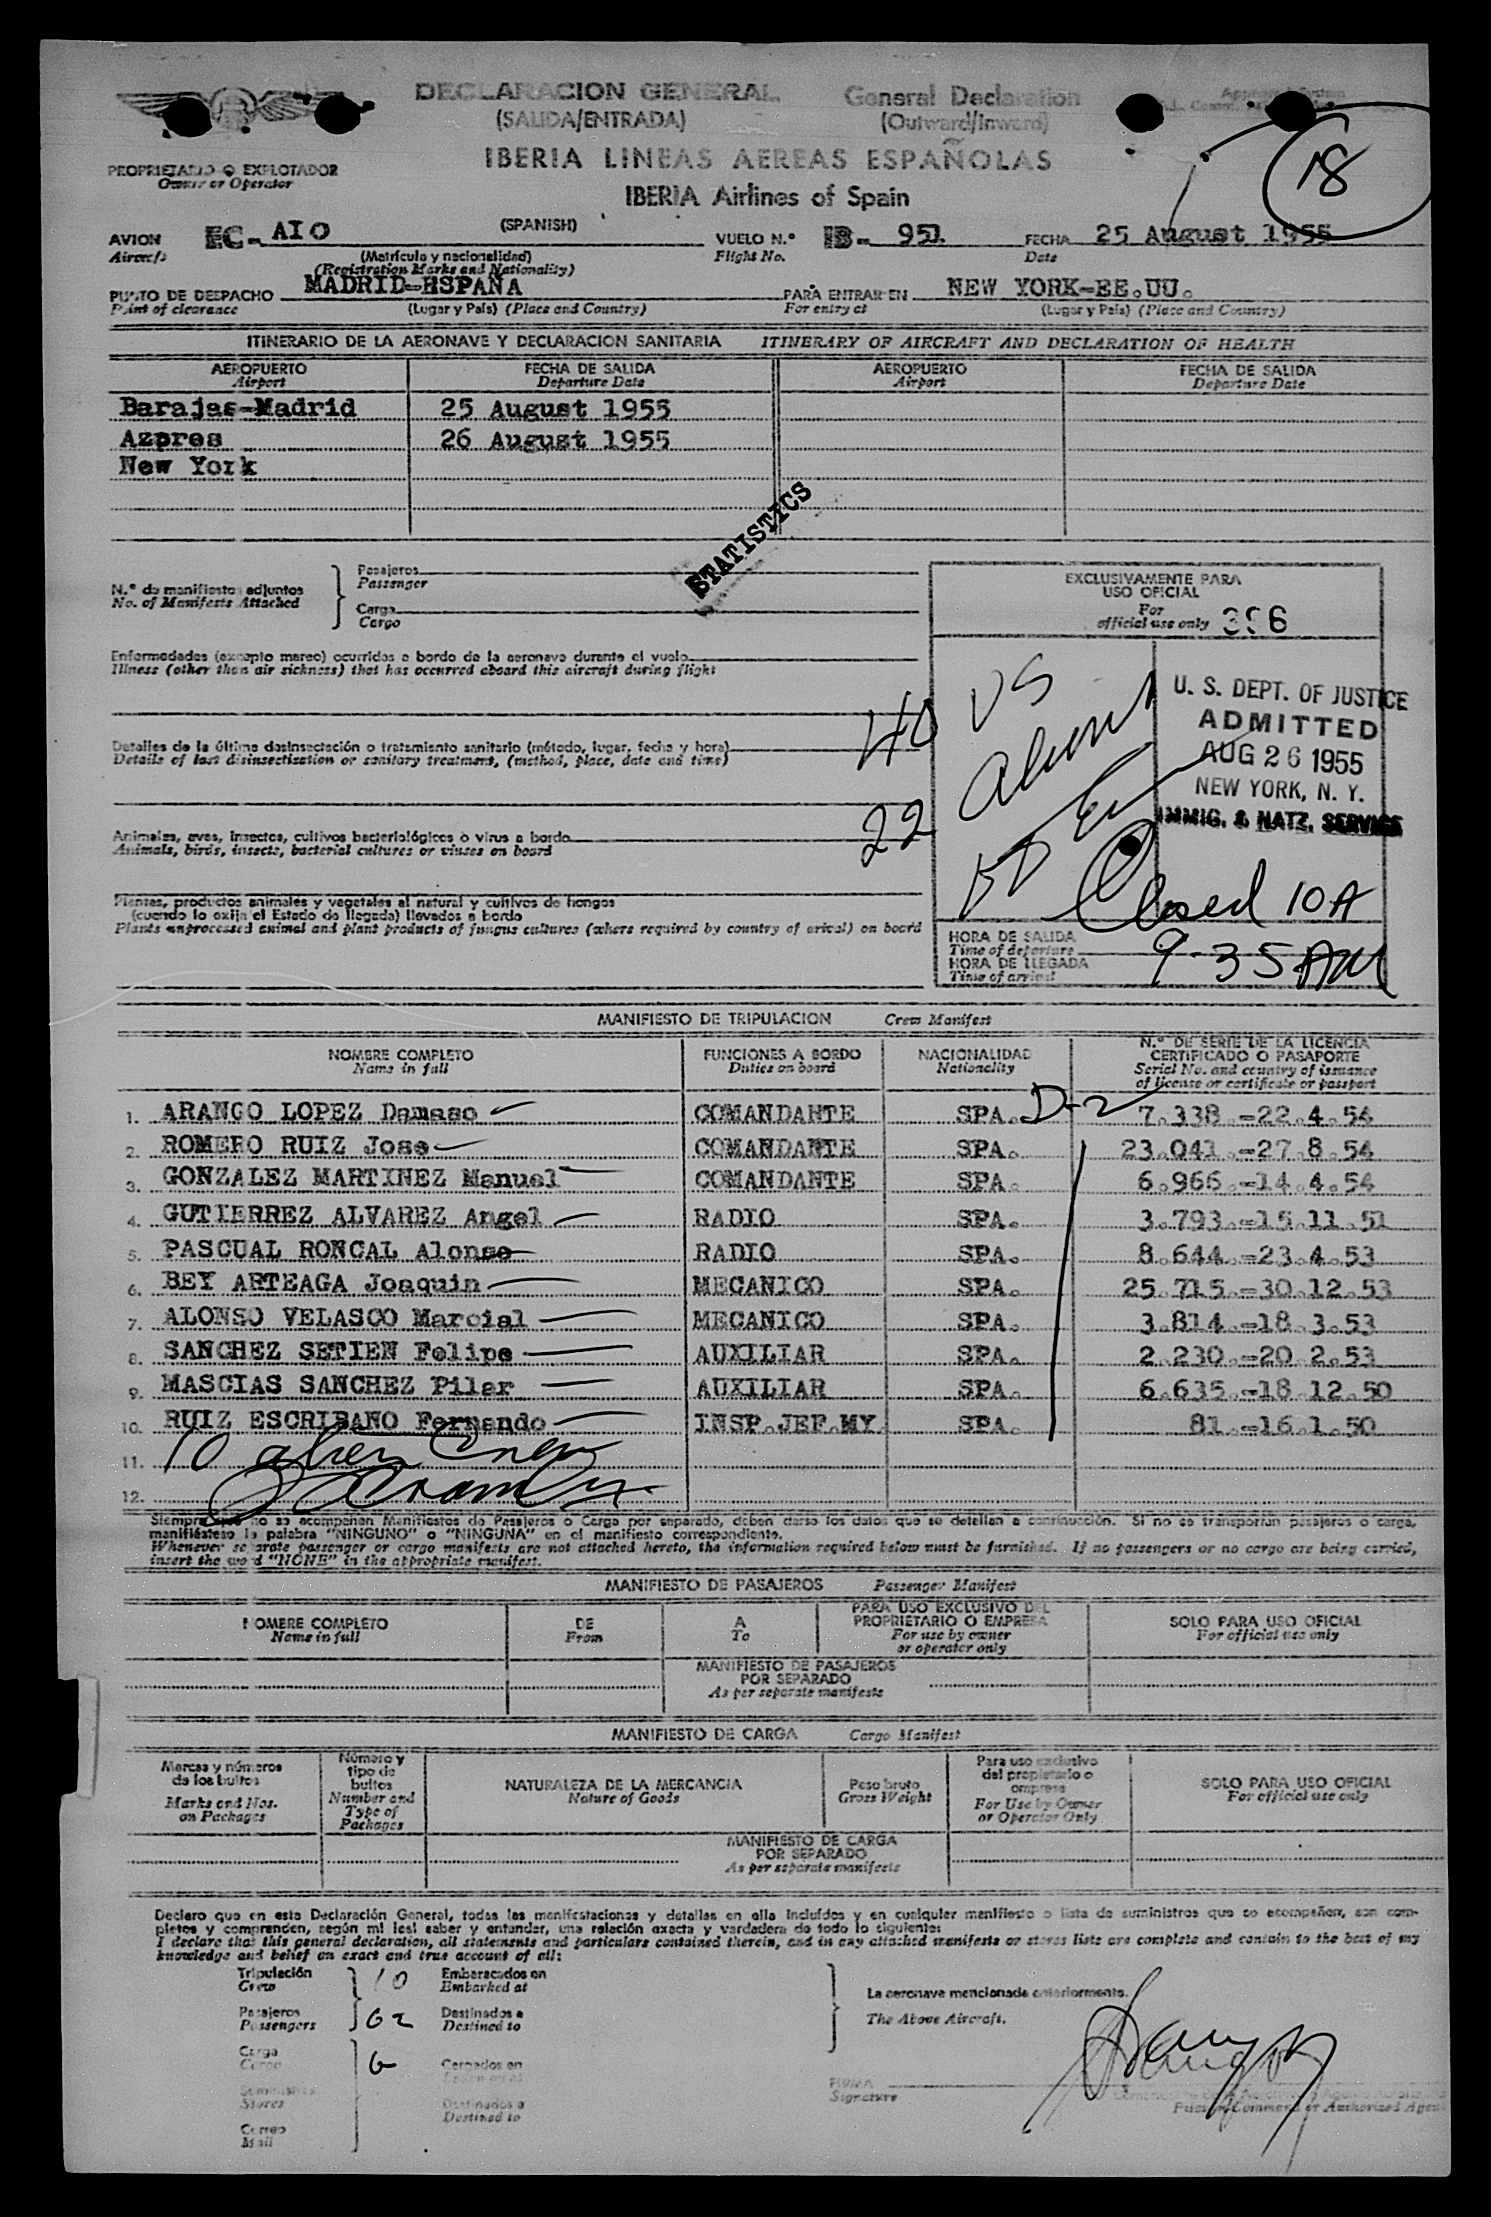 DECLARACION GENERAL
General Declaration
(SALIDA/ENTRADA)
(Outward/Inward)
IBERIA LINEAS AEREAS ESPAÑOLAS
IBERIA Airlines of Spain
18
PROPIETARIO O EXPLOTADOR
Owner or Operator
(SPANISH)
AVION EC- AIO VUELO N.º IB- 951 FECHA 25 August 1955
Aircraft (Matrícula y nacionalidad) Flight No. Date
(Registration Marks and Nationality)
PUNTO DE DESPACHO MADRID-ESPAÑA PARA ENTRAR EN NEW YORK-EE.UU.
Point of clearance (Lugar y País) (Place and Country) For entry at (Lugar y País) (Place and Country)
ITINERARIO DE LA AERONAVE Y DECLARACION SANITARIA ITINERARY OF AIRCRAFT AND DECLARATION OF HEALTH
AEROPUERTO FECHA DE SALIDA AEROPUERTO FECHA DE SALIDA
Airport Departure Date Airport Departure Date
Barajas-Madrid 25 August 1955
Azores 26 August 1955
New York
STATISTICS
N.º de manifiestos adjuntos
No. of Manifests Attached
Pasajeros
Passenger
Carga
Cargo
EXCLUSIVAMENTE PARA
USO OFICIAL
For
official use only 396
Enfermedades (excepto mareo) ocurridas a bordo de la aeronave durante el vuelo
Illness (other than air sickness) that has occurred aboard this aircraft during flight
40 US
22 Aliens
U. S. DEPT. OF JUSTICE
ADMITTED
AUG 26 1955
NEW YORK, N. Y.
IMMIG. & NATZ. SERVICE
Detalles de la última desinsectación o tratamiento sanitario (método, lugar, fecha y hora)
Details of last disinsectization or sanitary treatment, (method, place, date and time)
Animales, aves, insectos, cultivos bacteriológicos o virus a bordo
Animals, birds, insects, bacterial cultures or viuses on board
Closed 10A
Plantas, productos animales y vegetales al natural y cultivos de hongos
(cuando lo exija el Estado de llegada) llevados a bordo
Plants unprocessed animal and plant products of fungus cultures (where required by country of arival) on board
HORA DE SALIDA
Time of departure
HORA DE LLEGADA
Time of arrival
9-35 AM
MANIFIESTO DE TRIPULACION Crew Manifest
NOMBRE COMPLETO FUNCIONES A BORDO NACIONALIDAD N.º DE SERIE DE LA LICENCIA CERTIFICADO O PASAPORTE
Name in full Duties on board Nationality Serial No. and country of issuance of license or certificate or passport
1. ARANGO LOPEZ Damaso COMANDANTE SPA. D-2 7.338.-22.4.54
2. ROMERO RUIZ Jose COMANDANTE SPA. 23.041.-27.8.54
3. GONZALEZ MARTINEZ Manuel COMANDANTE SPA. 6.966.-14.4.54
4. GUTIERREZ ALVAREZ Angel RADIO SPA. 3.793.-15.11.51
5. PASCUAL RONCAL Alonso RADIO SPA. 8.644.-23.4.53
6. BEY ARTEAGA Joaquin MECANICO SPA. 25.715.-30.12.53
7. ALONSO VELASCO Marcial MECANICO SPA. 3.814.-18.3.53
8. SANCHEZ SETIEN Felipe AUXILIAR SPA. 2.230.-20.2.53
9. MASCIAS SANCHEZ Pilar AUXILIAR SPA. 6.635.-18.12.50
10. RUIZ ESCRIBANO Fernando INSP.JEF.MY. SPA. 81.-16.1.50
11. 10 alien Crew
12.
Siempre que no se acompañen Manifiestos de Pasajeros o Carga por separado, deben darse los datos que se detallan a continuación. Si no se transportan pasajeros o carga,
manifiéstese la palabra "NINGUNO" o "NINGUNA" en el manifiesto correspondiente.
Whenever separate passenger or cargo manifests are not attached hereto, the information required below must be furnished. If no passengers or no cargo are being carried,
insert the word "NONE" in the appropriate manifest.
MANIFIESTO DE PASAJEROS Passenger Manifest
NOMBRE COMPLETO DE A PARA USO EXCLUSIVO DEL PROPRIETARIO O EMPRESA SOLO PARA USO OFICIAL
Name in full From To For use by owner or operator only For official use only
MANIFIESTO DE PASAJEROS
POR SEPARADO
As per separate manifests
MANIFIESTO DE CARGA Cargo Manifest
Marcas y números de los bultos Número y tipo de bultos NATURALEZA DE LA MERCANCIA Peso bruto Para uso exclusivo del propietario o empresa SOLO PARA USO OFICIAL
Marks and Nos. on Packages Number and Type of Packages Nature of Goods Gross Weight For Use by Owner or Operator Only For official use only
MANIFIESTO DE CARGA
POR SEPARADO
As per separate manifests
Declaro que en esta Declaración General, todas las manifestaciones y detalles en ella incluídos y en cualquier manifiesto o lista de suministros que se acompañen, son com-
pletos y comprenden, según mi leal saber y entender, una relación exacta y verdadera de todo lo siguiente:
I declare that this general declaration, all statements and particulars contained therein, and in any attached manifests or stores lists are complete and contain to the best of my
knowledge and belief an exact and true account of all:
Tripulación 10 Embaracados en
Crew Embarked at
Pasajeros 62 Destinados a
Passengers Destined to
La aeronave mencionada anteriormente.
The Above Aircraft.
Carga Cargados en
Cargo
Suministros
Stores
Destinados a
Destined to
Correo
Mail
FIRMA
Signature
Pilot in Command or Authorized Agent